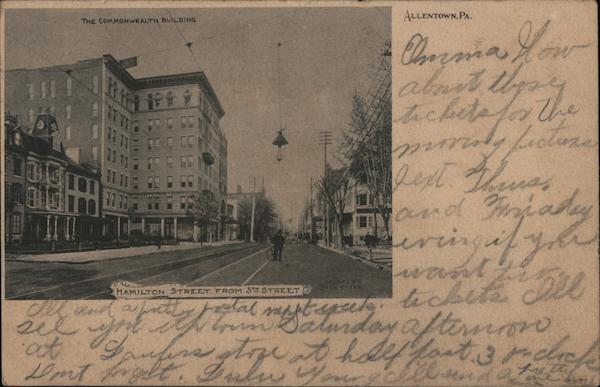 THE COMMONWEALTH BUILDING
ALLENTOWN, PA.
HAMILTON STREET FROM 5TH STREET
Emma How
about those
tickets for the
moving pictures
next Thurs.
and Friday
eving if you
want
tickets Ill
Ill and a pretty postal next week.
see you up town Saturday afternoon
at store at half past 3 o-clock
Dont forget.